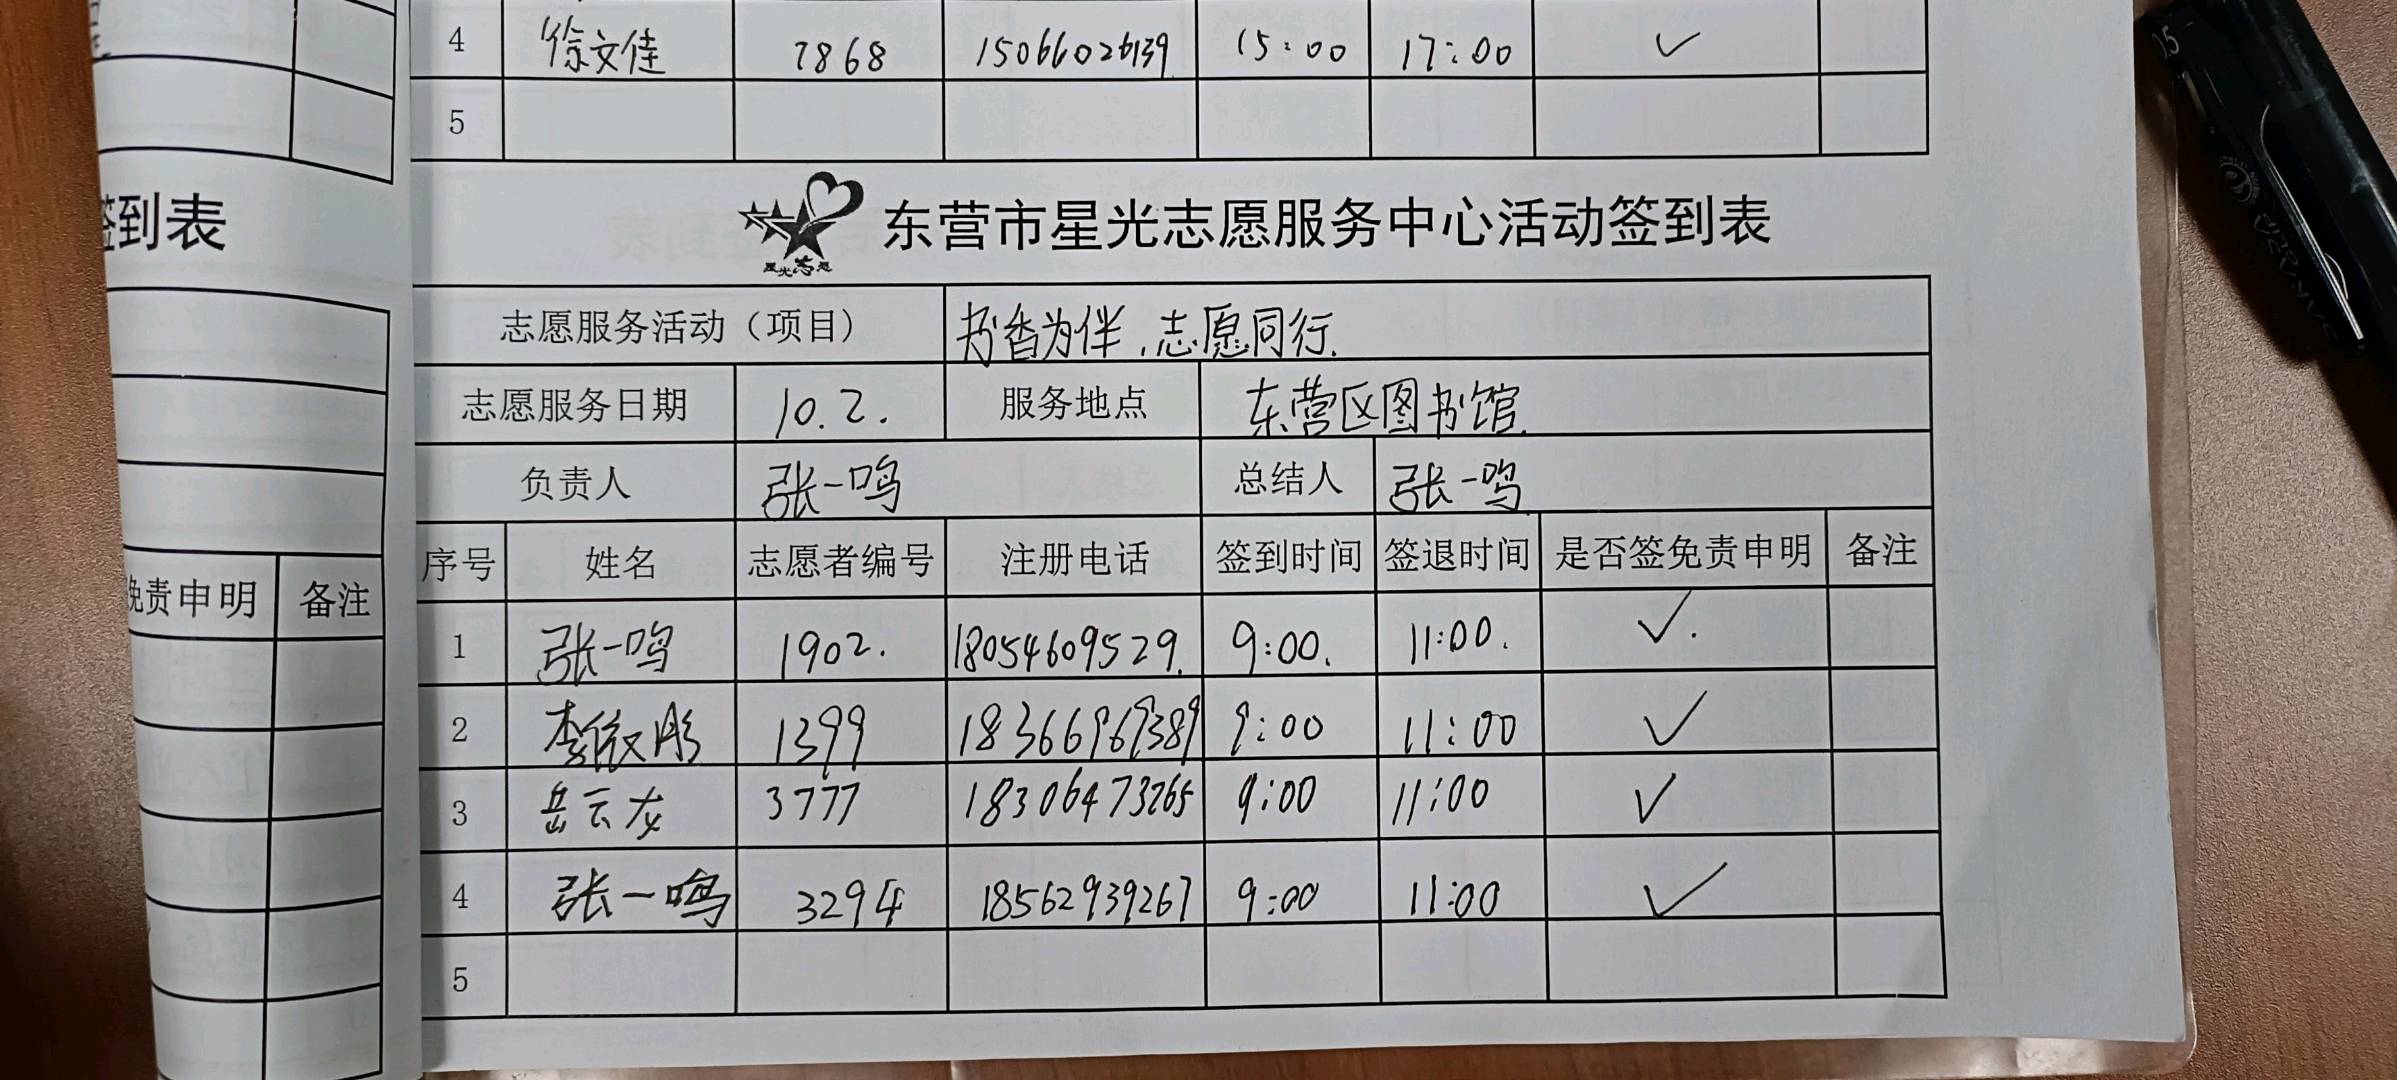 4 徐文佳 7868 15066026139 15:00 17:00 ✓
5
签到表
东营市星光志愿服务中心活动签到表
星光志愿
志愿服务活动（项目） 书香为伴,志愿同行.
志愿服务日期 10.2. 服务地点 东营区图书馆.
负责人 张一鸣 总结人 张一鸣
序号 姓名 志愿者编号 注册电话 签到时间 签退时间 是否签免责申明 备注
免责申明 备注
1 张一鸣 1902. 18054609529. 9:00. 11:00. ✓.
2 李微彤 1399 18366969389 9:00 11:00 ✓
3 岳云龙 3777 18306473265 9:00 11:00 ✓
4 张一鸣 3294 18562939267 9:00 11:00 ✓
5